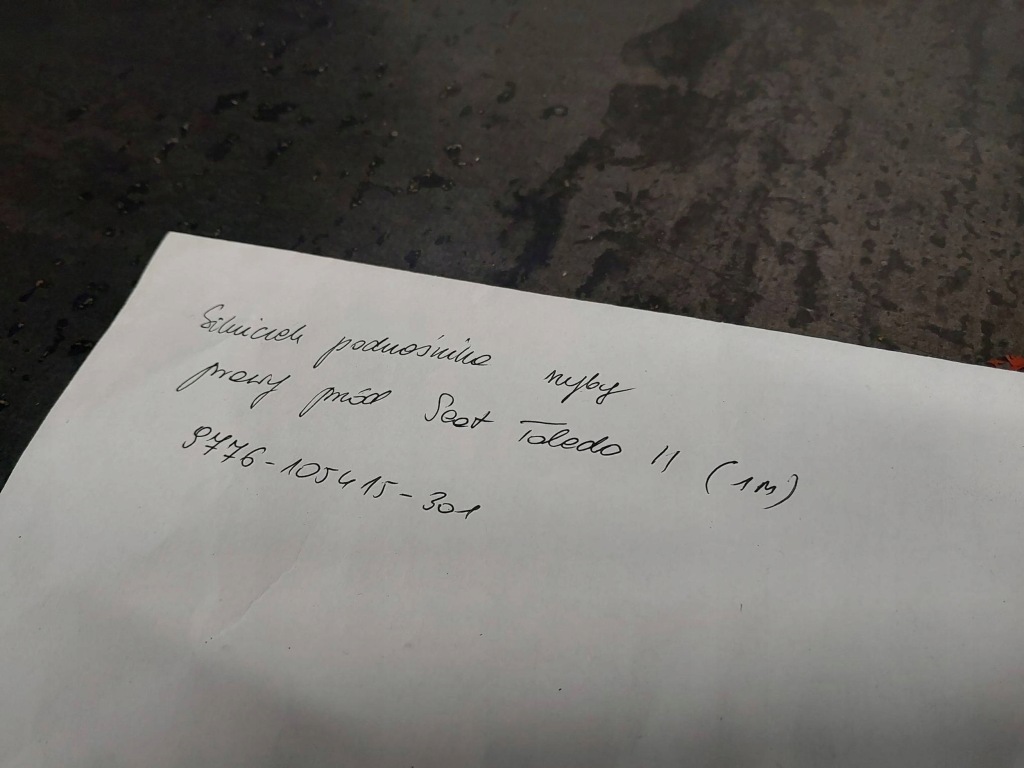 Silniczek podnośnika szyby
prawy przód Seat Toledo II (1M)
9776-105415-301